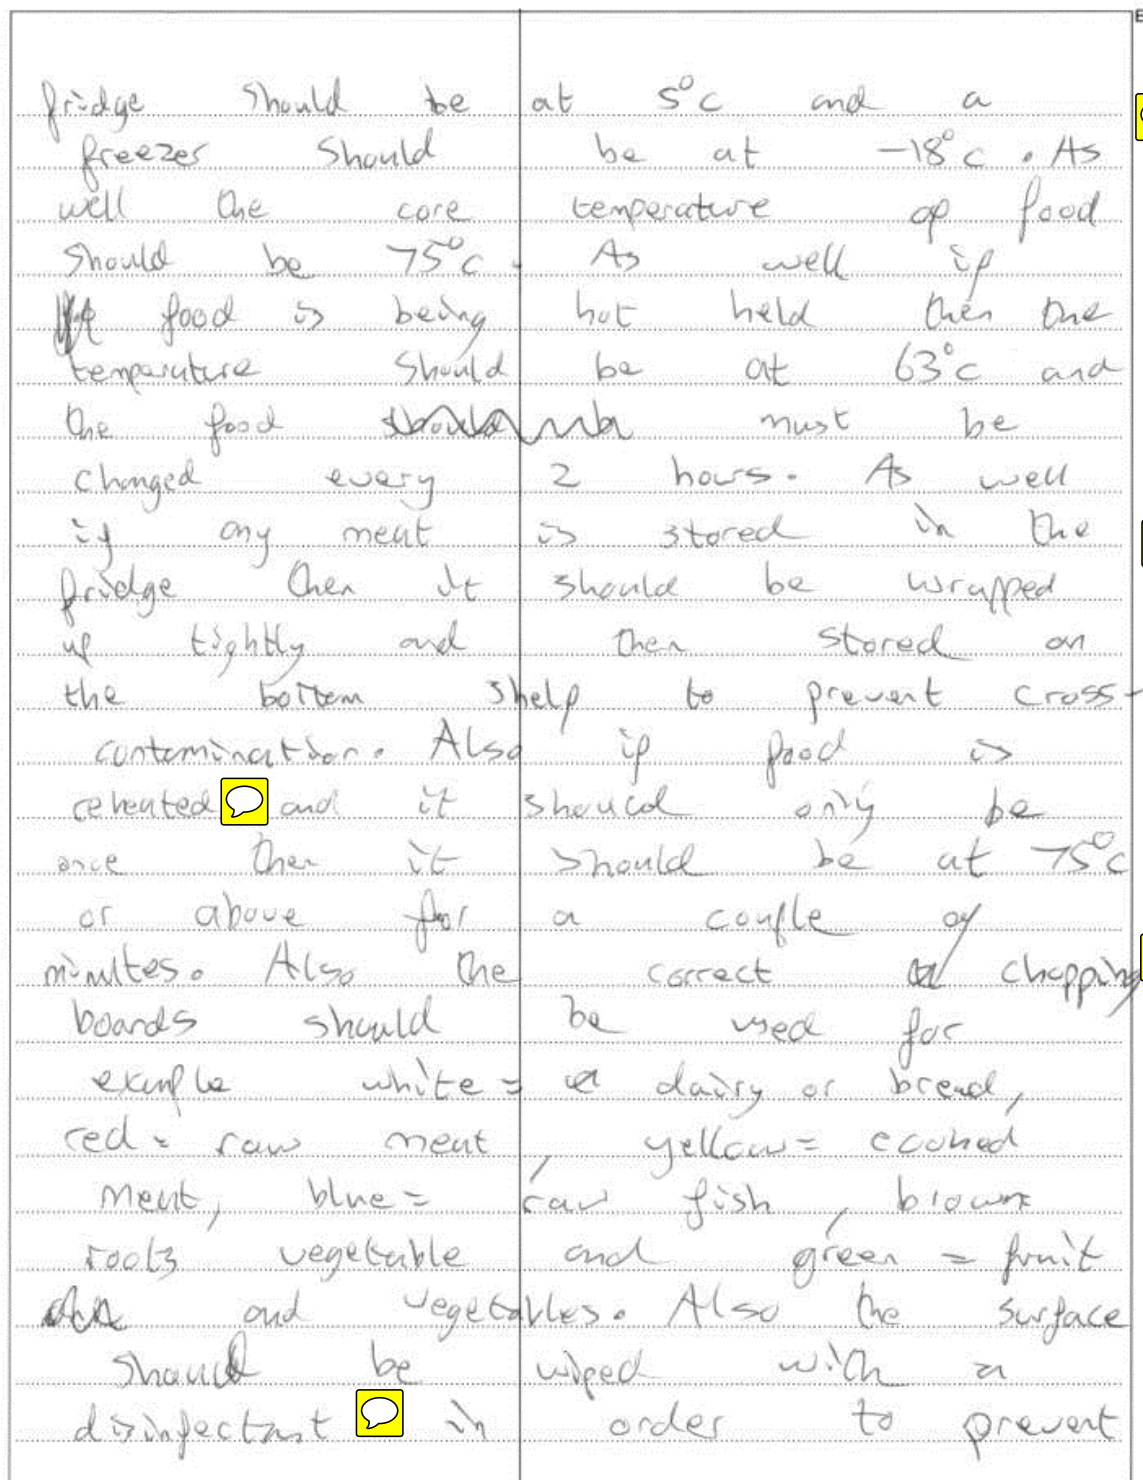 fridge should be at 5°c and a
freezer should be at -18°c. As
well the core temperature of food
should be 75°c. As well if
food is being hot held then the
temperature should be at 63°c and
the food must be
changed every 2 hours. As well
if any meat is stored in the
fridge then it should be wrapped
up tightly and then stored on
the bottom shelf to prevent cross-
contamination. Also if food is
reheated and it should only be
once then it should be at 75°c
or above for a couple of
minutes. Also the correct chopping
boards should be used for
example white = dairy or bread,
red = raw meat, yellow = cooked
meat, blue = raw fish, brown =
roots vegetable and green = fruit
and vegetables. Also the surface
should be wiped with a
disinfectant in order to prevent